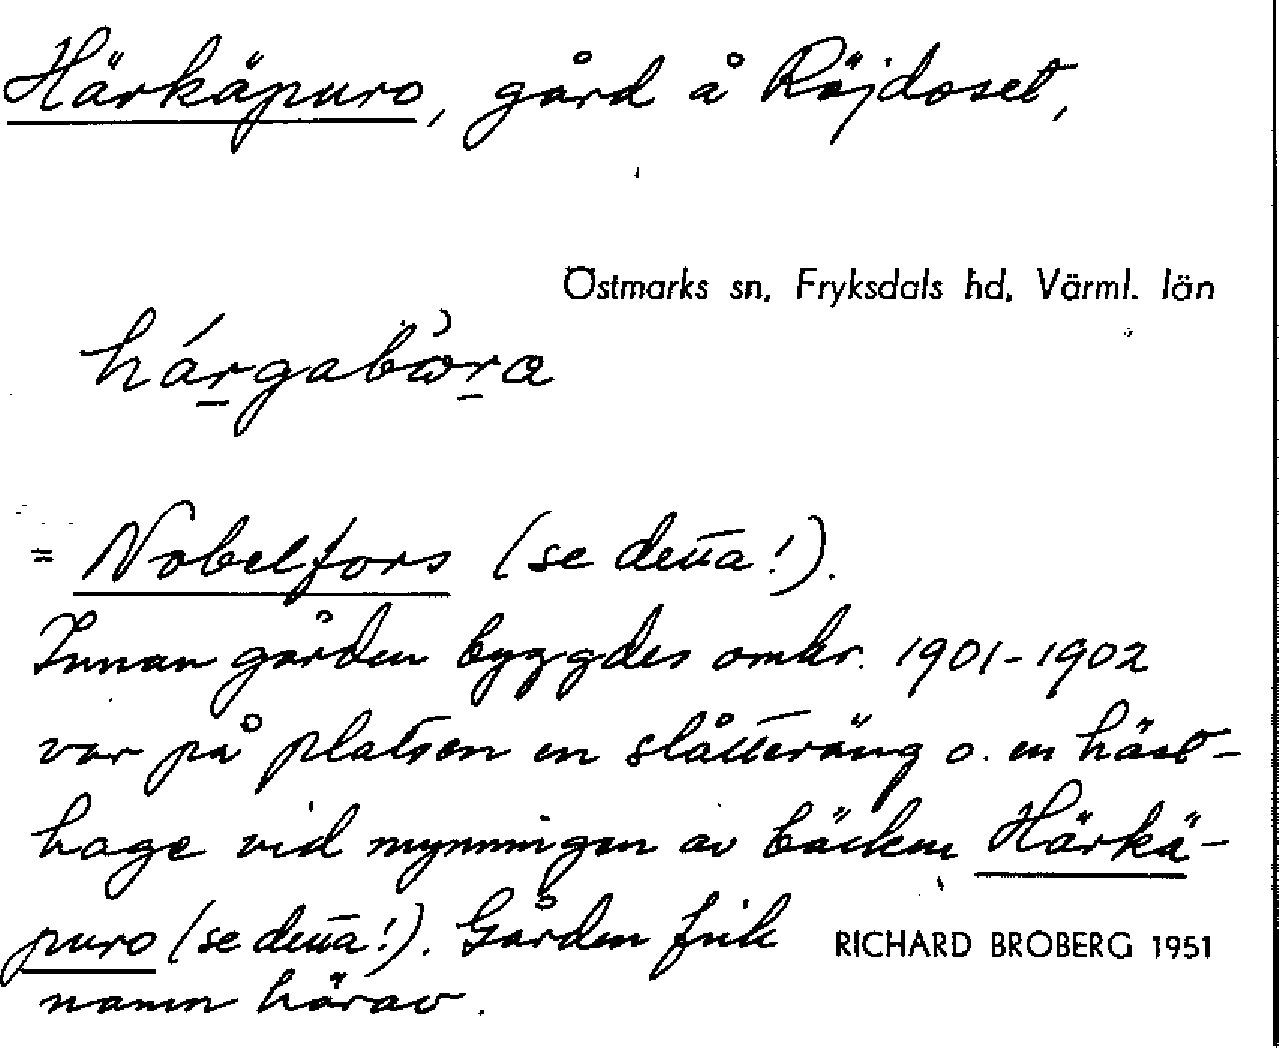 Härkäpuro, gård å Röjdoset,
Östmarks sn, Fryksdals hd, Värml. län
= Nobelfors (se detta!).
Innan gården byggdes omkr. 1901-1902
var på platsen en slåtteräng o. en häst-
hage vid mynningen av bäcken Härkä-
puro (se detta!). Gården fick
RICHARD BROBERG 1951
namn härav.